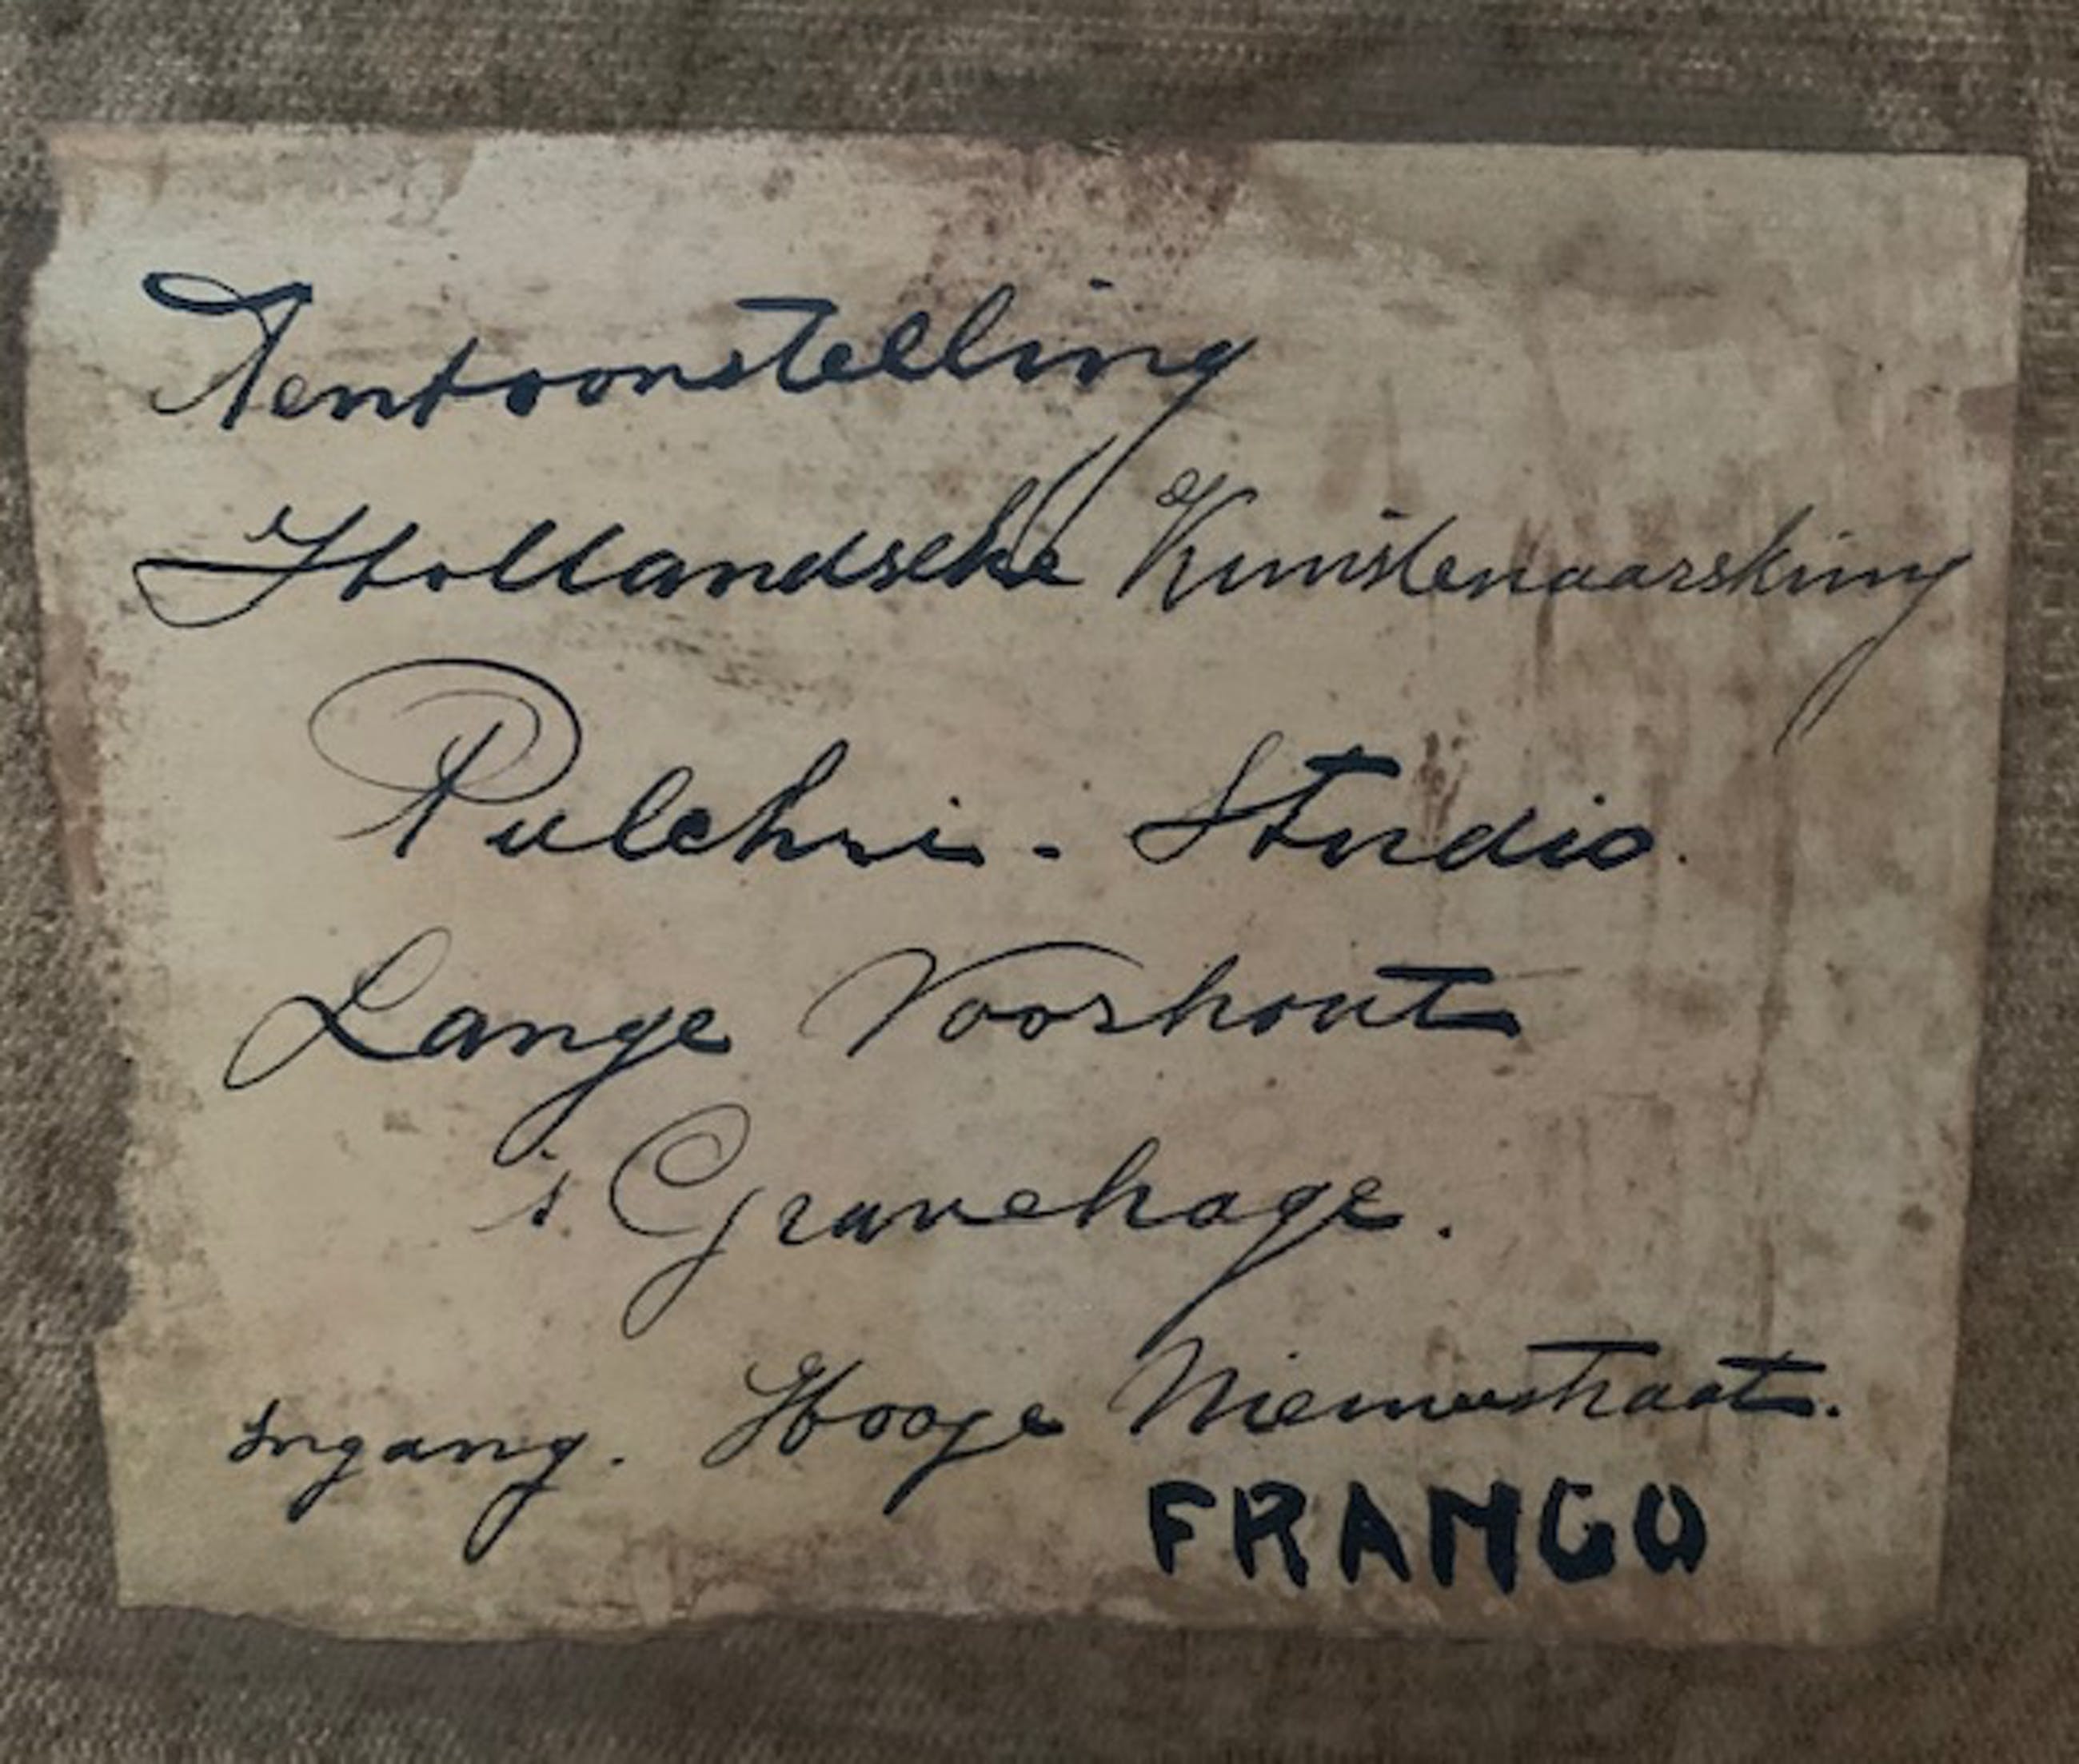 Tentoonstelling
Hollandsche Kunstenaarskring
Pulchri - Studio.
Lange Voorhout
's Gravehage.
Ingang. Hooge Nieuwstraat.
FRANCO